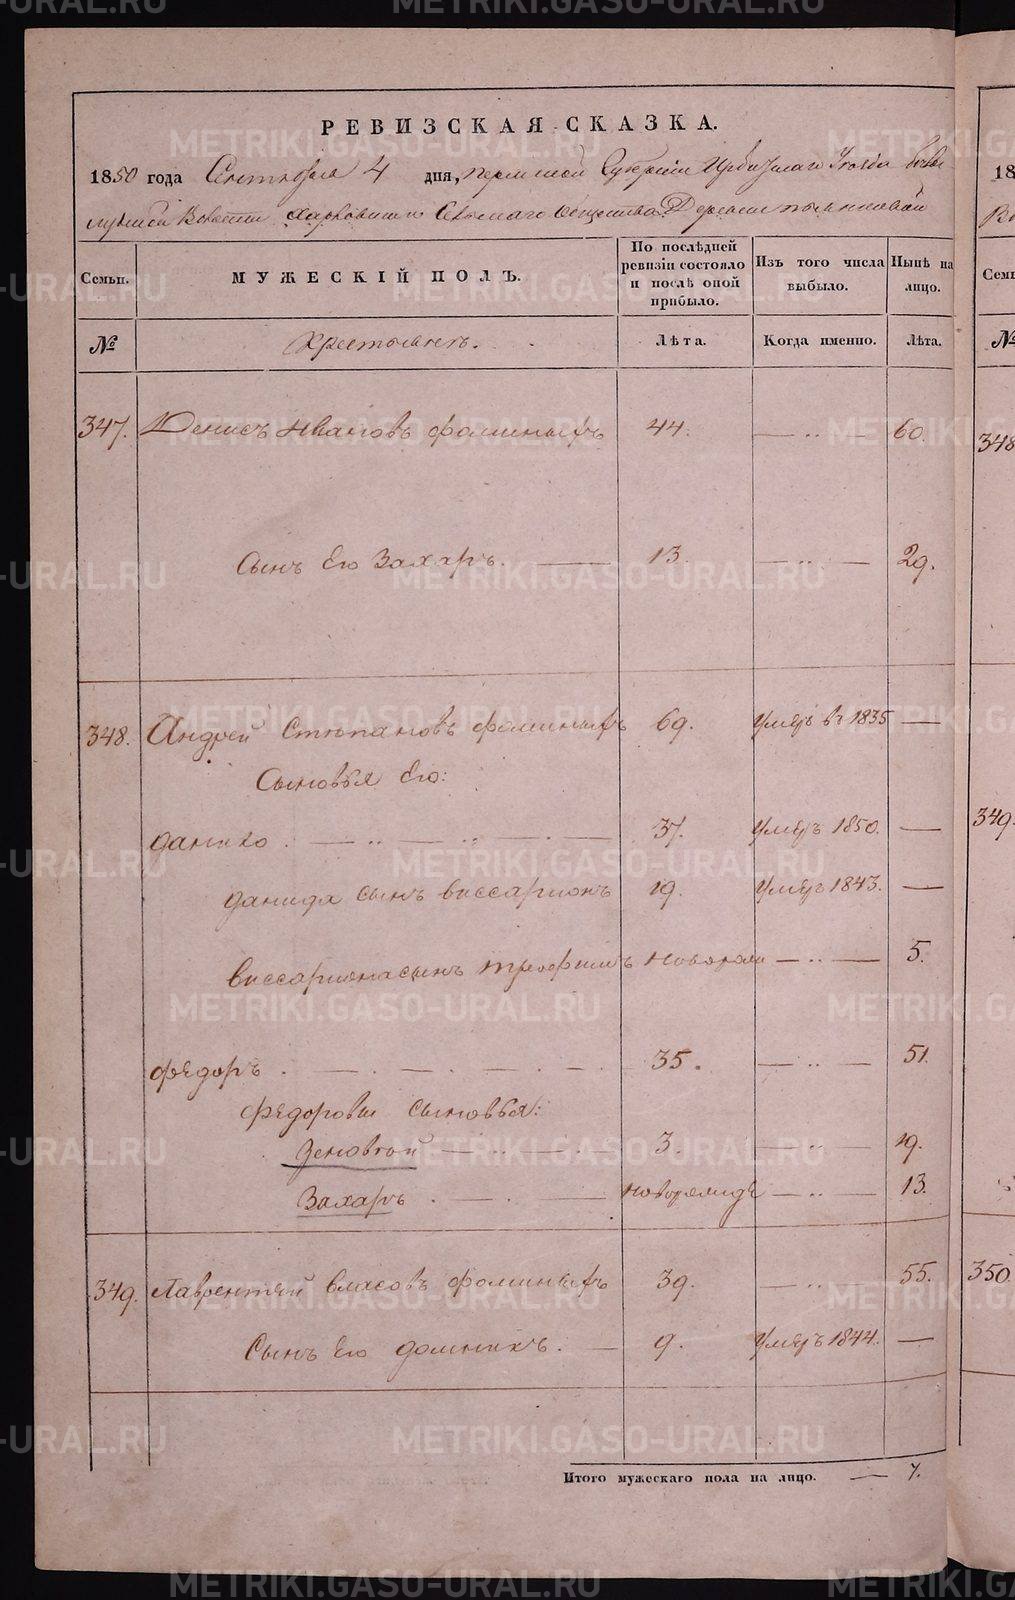 РЕВИЗСКАЯ СКАЗКА.
1850 года Сентября 4 дня, Пермской Губернии Ирбитскаго Уезда
Волости Харловскаго Сельскаго общества Деревни
Семьи. МУЖЕСКІЙ ПОЛЪ. По послѣдней ревизіи состояло и послѣ оной прибыло. Изъ того числа выбыло. Нынѣ на лицо.
№ Крестьянъ. Лѣта. Когда именно. Лѣта.
347. Денисъ Ивановъ Фоминыхъ 44. — „ — 60.
Сынъ Его Захаръ. — 13. — „ — 29.
348. Андрей Степановъ Фоминыхъ 69. Умеръ въ 1835 —
Сыновья Его:
Данило . — „ — „ — . — 37. Умеръ 1850. —
Данила сынъ Виссарионъ 19. Умеръ 1843. —
Виссариона сынъ Трофимъ новорожд — „ — 5.
Федоръ . — . — . — . — . — 35. — „ — 51.
Федоровы сыновья:
Зеновтой — „ — . — 3. — „ — 19.
Захаръ . — . — новорожд — „ — 13.
349. Лаврентей Власовъ Фоминыхъ 39. — „ — 55.
Сынъ Его Домникъ. — 9. Умеръ 1844. —
Итого мужескаго пола на лицо. — 7.
18
Семьи
№
348
349.
350.
METRIKI.GASO-URAL.RU